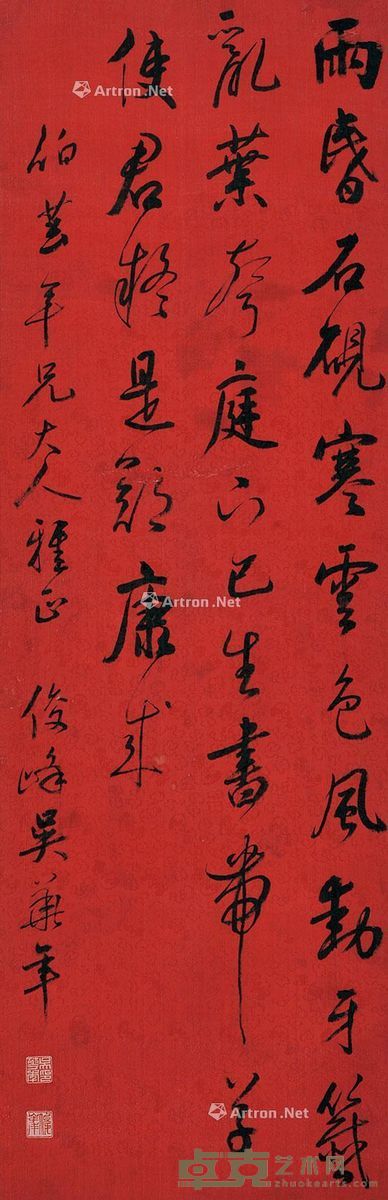 雨昏石硯寒雲色風動牙籤
亂葉聲庭下已生書帶草
使君疑是鄭康成
伯芸年兄大人雅正 俊峰吳華年
Artron.Net
Artron.Net
Artron.Net
卓克艺术网
zhuokearts.com